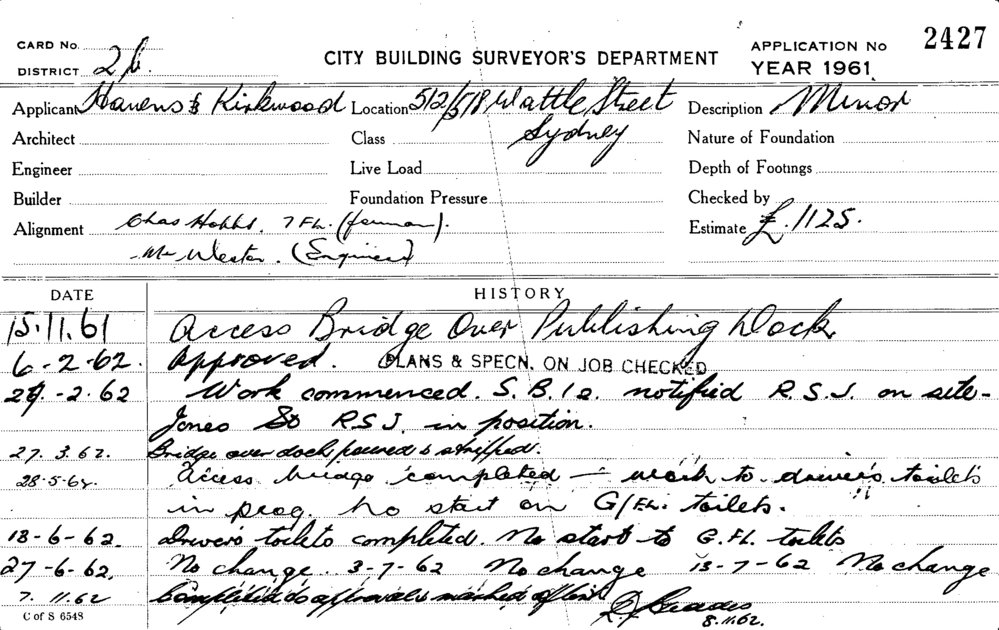 CARD No.
DISTRICT 26.
CITY BUILDING SURVEYOR'S DEPARTMENT
APPLICATION No 2427
YEAR 1961
Applicant Havens & Kirkwood Location 512/518 Wattle Street Description Minor
Architect Class Sydney Nature of Foundation
Engineer Live Load Depth of Footings
Builder Foundation Pressure Checked by
Alignment Chas Hobbs. 7 FL. (foreman). Estimate £.1125.
Mr Wester. (Engineer)
DATE HISTORY
15.11.61 Access Bridge Over Publishing Dock
6-2-62. Approved. PLANS & SPECN. ON JOB CHECKED
-2.62 Work commenced. S.B.I. notified R.S.J. on site-
Jones St R.S.J. in position.
27.3.62. Bridge over dock poured & stripped.
28-5-62. Access bridge completed - work to drivers toilets
in prog. No start on G/FL. toilets.
18-6-62. Drivers toilets completed. No start to G.FL. toilets
27-6-62. No change. 3-7-62 No change 13-7-62 No change
7.11.62 Completed as approval & marked off list
8.11.62.
C of S 6548